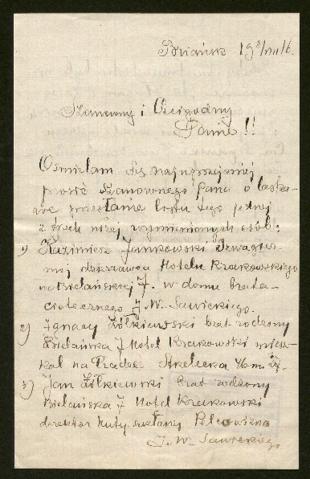 Briańsk 19 3/VIII 16.
Szanowny i Czcigodny
Panie!!
Ośmielam się najuprzejmiej
prosić Szanownego Pana o łaska-
we przesłanie listu tego jednej
z trzech niżej wymienionych osób:
1) Kazimierz Jankowski Szwagier
mój dzierżawca Hotelu Krakowskiego
na Bielańskiej 7. w domu brata
ciotecznego J. W. Sawickiego.
2) Ignacy Żółkiewski brat rodzony
Bielańska 7 Hotel Krakowski miesz-
kał na Pradze Strzelecka
3) Jan Żółkiewski brat rodzony
Bielańska 7 Hotel Krakowski
direktor huty szklanej
J. W. Sawickiego